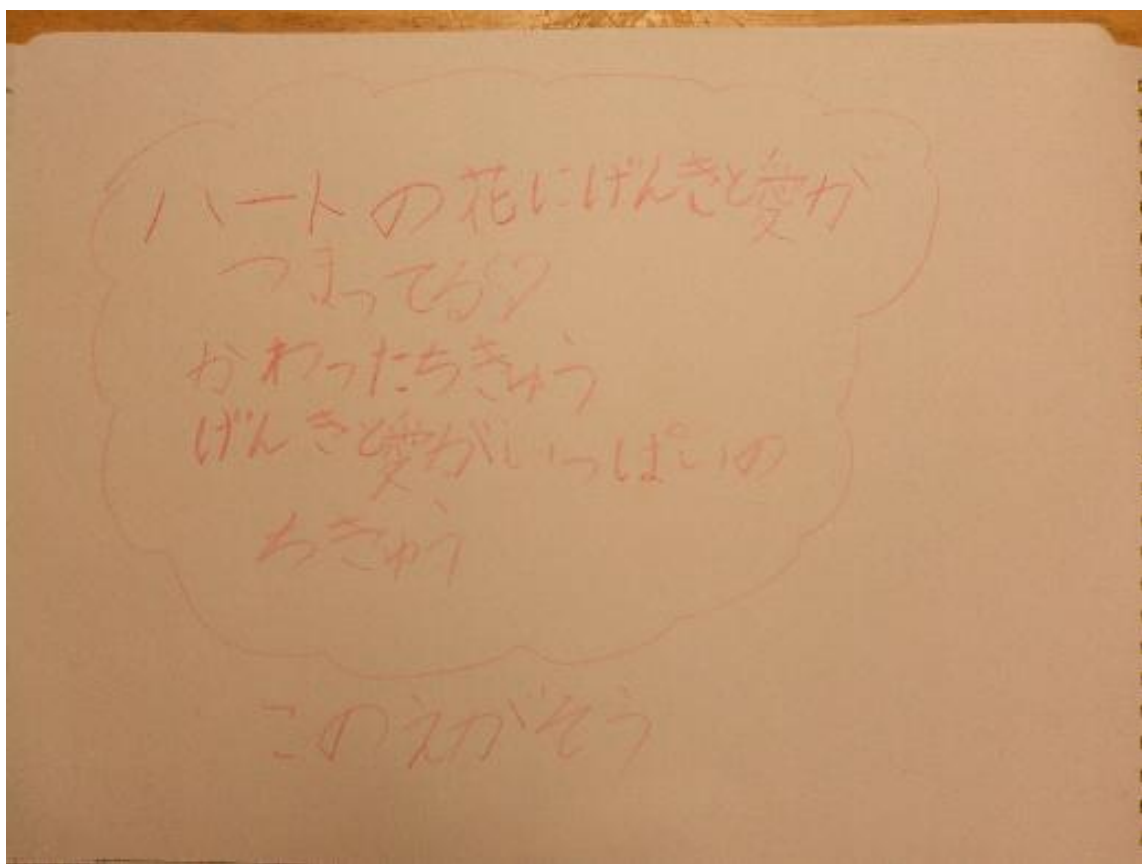 ハートの花にげんきと愛が
つまってる♡
かわったちきゅう
げんきと愛がいっぱいの
ちきゅう
このえがそう